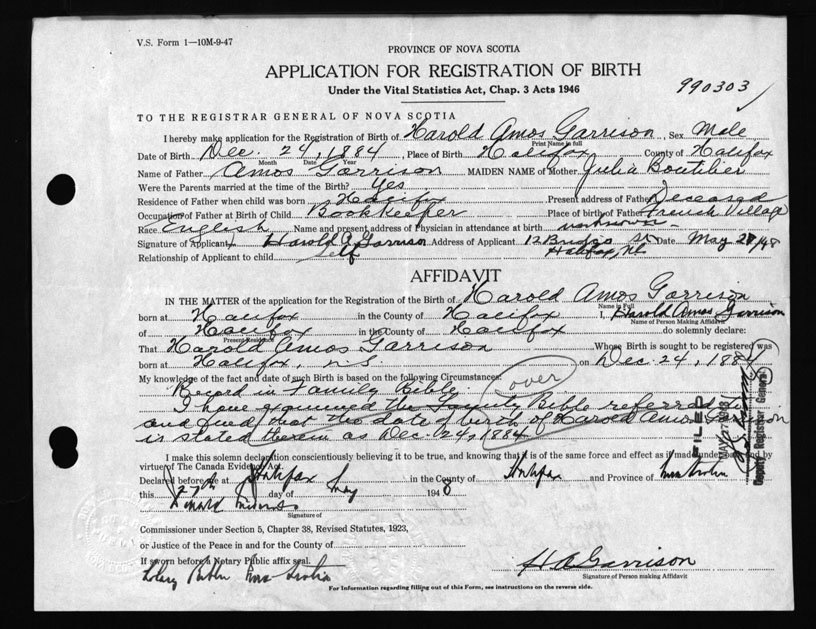 V.S. Form 1—10M-9-47
PROVINCE OF NOVA SCOTIA
APPLICATION FOR REGISTRATION OF BIRTH
Under the Vital Statistics Act, Chap. 3 Acts 1946
990303
TO THE REGISTRAR GENERAL OF NOVA SCOTIA
I hereby make application for the Registration of Birth of Harold Amos Garrison, Sex Male
Print Name in full
Date of Birth Dec. 24, 1884, Place of Birth Halifax County of Halifax
Month Date Year
Name of Father Amos Garrison MAIDEN NAME of Mother Julia Boutilier
Were the Parents married at the time of the Birth? Yes
Residence of Father when child was born Halifax Present address of Father Deceased
Occupation of Father at Birth of Child Bookkeeper Place of birth of Father French Village
Race English Name and present address of Physician in attendance at birth unknown
Signature of Applicant Harold A Garrison Address of Applicant 12 Briggs St Date May 27/48
Relationship of Applicant to child Self Halifax, N.S.
AFFIDAVIT
IN THE MATTER of the application for the Registration of the Birth of Harold Amos Garrison
Name in Full
born at Halifax in the County of Halifax I, Harold Amos Garrison
Name of Person Making Affidavit
of Halifax in the County of Halifax do solemnly declare:
Present Residence
That Harold Amos Garrison Whose Birth is sought to be registered was
born at Halifax, N.S. on Dec. 24, 1884
My knowledge of the fact and date of such Birth is based on the following Circumstances:
Record in Family Bible. over
I have examined the Family Bible referred to
and find that the date of birth of Harold Amos Garrison
is stated therein as Dec. 24, 1884
FILED
MAY 27 1948
Deputy Registrar General
I make this solemn declaration conscientiously believing it to be true, and knowing that it is of the same force and effect as if made under oath and by
virtue of The Canada Evidence Act.
Declared before me at Halifax in the County of Halifax and Province of Nova Scotia
this 27th day of May 1948
Signature of
Commissioner under Section 5, Chapter 38, Revised Statutes, 1923,
or Justice of the Peace in and for the County of
If sworn before a Notary Public affix seal.
Notary Public Nova Scotia
H A Garrison
Signature of Person making Affidavit
For Information regarding filling out of this Form, see instructions on the reverse side.